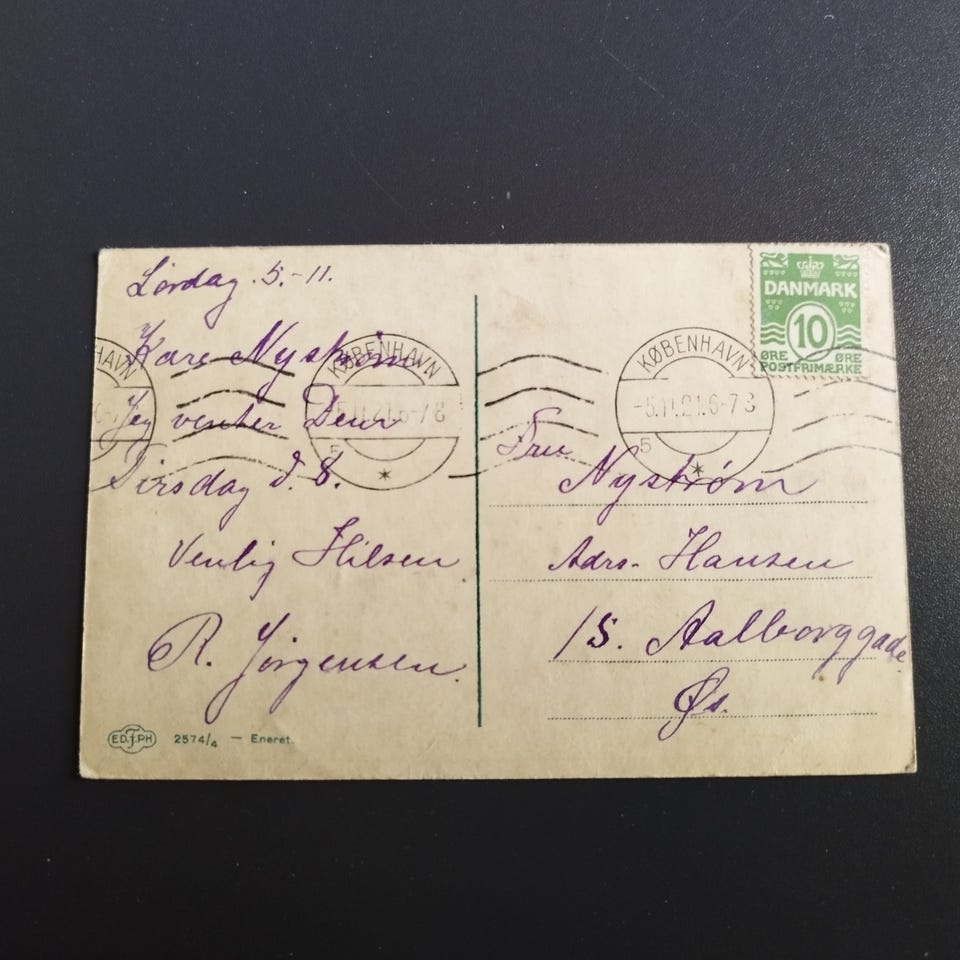 Lørdag. 5.-11.
Kære Nyström
Jeg venter Dem
Tirsdag d. 8.
Venlig Hilsen
R. Jörgensen.
ED.F.PH 2574/4 — Eneret.
HAVN
KØBENHAVN
5.11.21.6-7 8
5
KØBENHAVN
-5.11.21.6-7 8
5
DANMARK
10
ØRE ØRE
POSTFRIMÆRKE
Fru
Nystrøm
Adrs. Hansen
15. Aalborggade.
Øs.